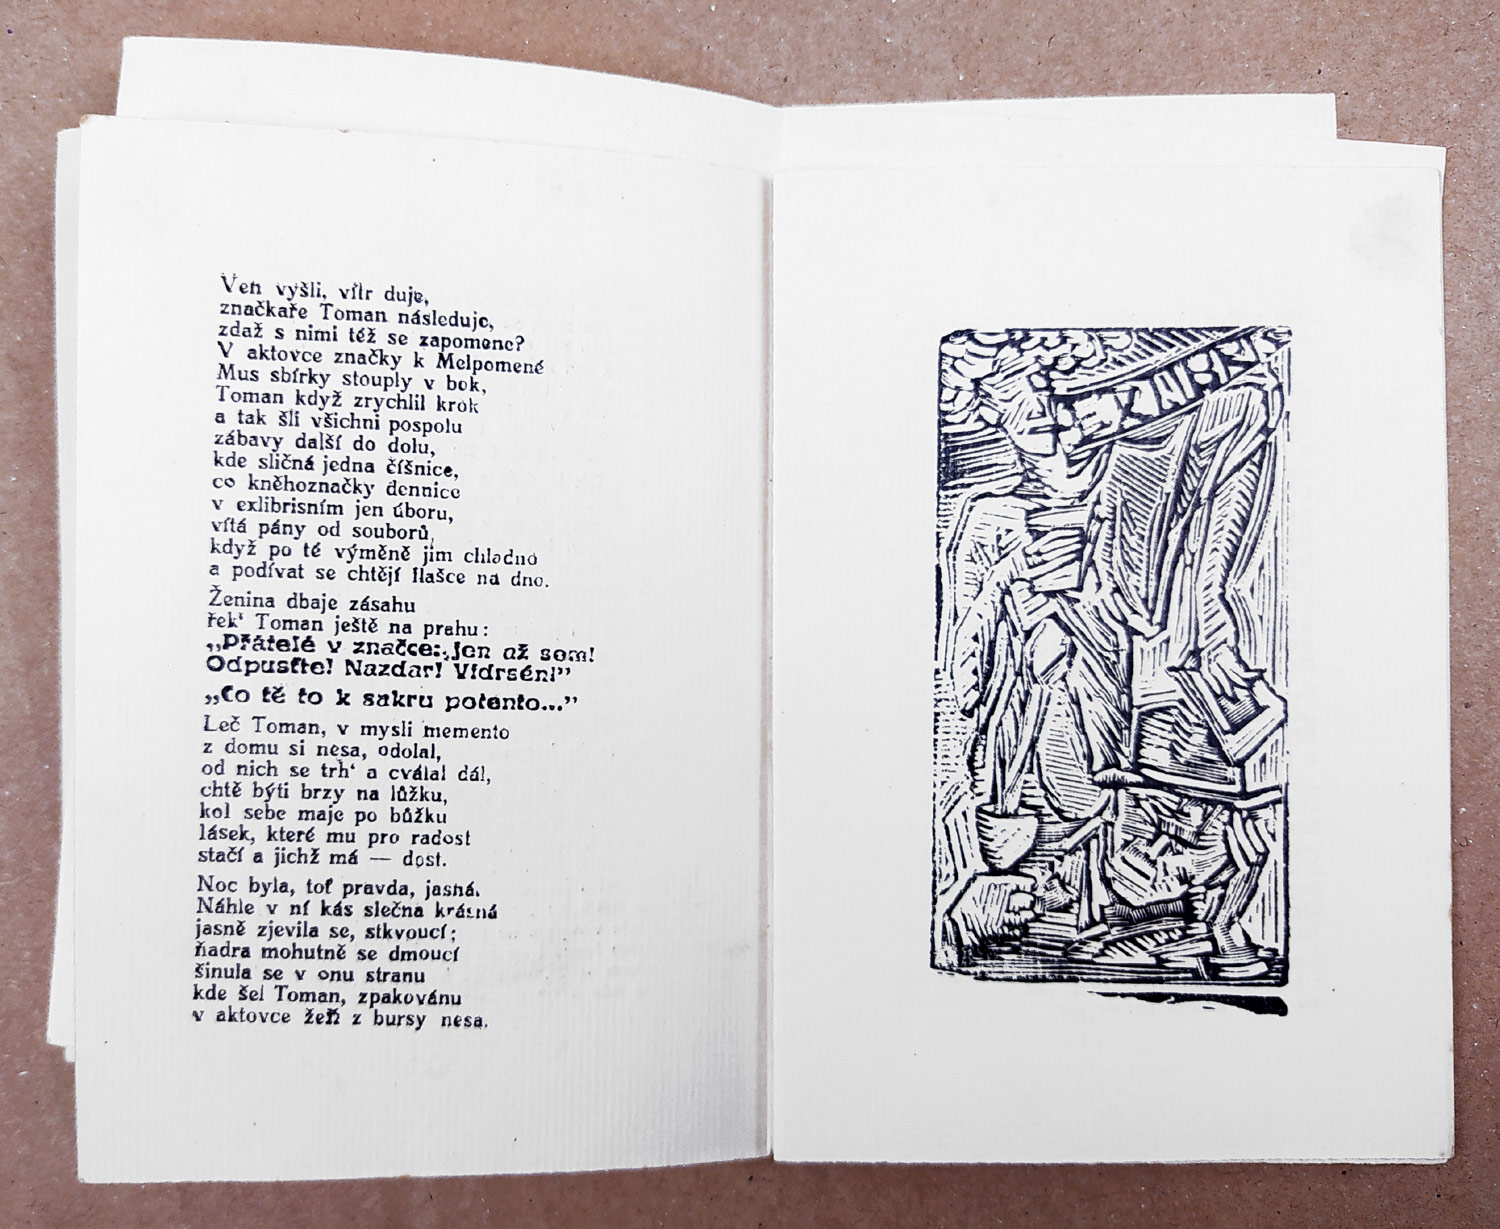 Ven vyšli, vítr duje,
značkaře Toman následuje,
zdaž s nimi též se zapomene?
V aktovce značky k Melpomené
Mus sbírky stouply v bok,
Toman když zrychlil krok
a tak šli všichni pospolu
zábavy další do dolu,
kde sličná jedna číšnice,
co kněhoznačky dennice
v exlibrisním jen úboru,
vítá pány od souborů,
když po té výměně jim chladno
a podívat se chtějí flašce na dno.
Ženina dbaje zásahu
řek‘ Toman ještě na prahu:
„Přátelé v značce: Jen až sem!
Odpusťte! Nazdar! Vídrsén!”
„Co tě to k sakru potento...”
Leč Toman, v mysli memento
z domu si nesa, odolal,
od nich se trh‘ a cválal dál,
chtě býti brzy na lůžku,
kol sebe maje po bůžku
lásek, které mu pro radost
stačí a jichž má — dost.
Noc byla, toť pravda, jasná.
Náhle v ní kás slečna krásná
jasně zjevila se, stkvoucí;
ňadra mohutně se dmoucí
šinula se v onu stranu
kde šel Toman, zpakovánu
v aktovce žeň z bursy nesa.